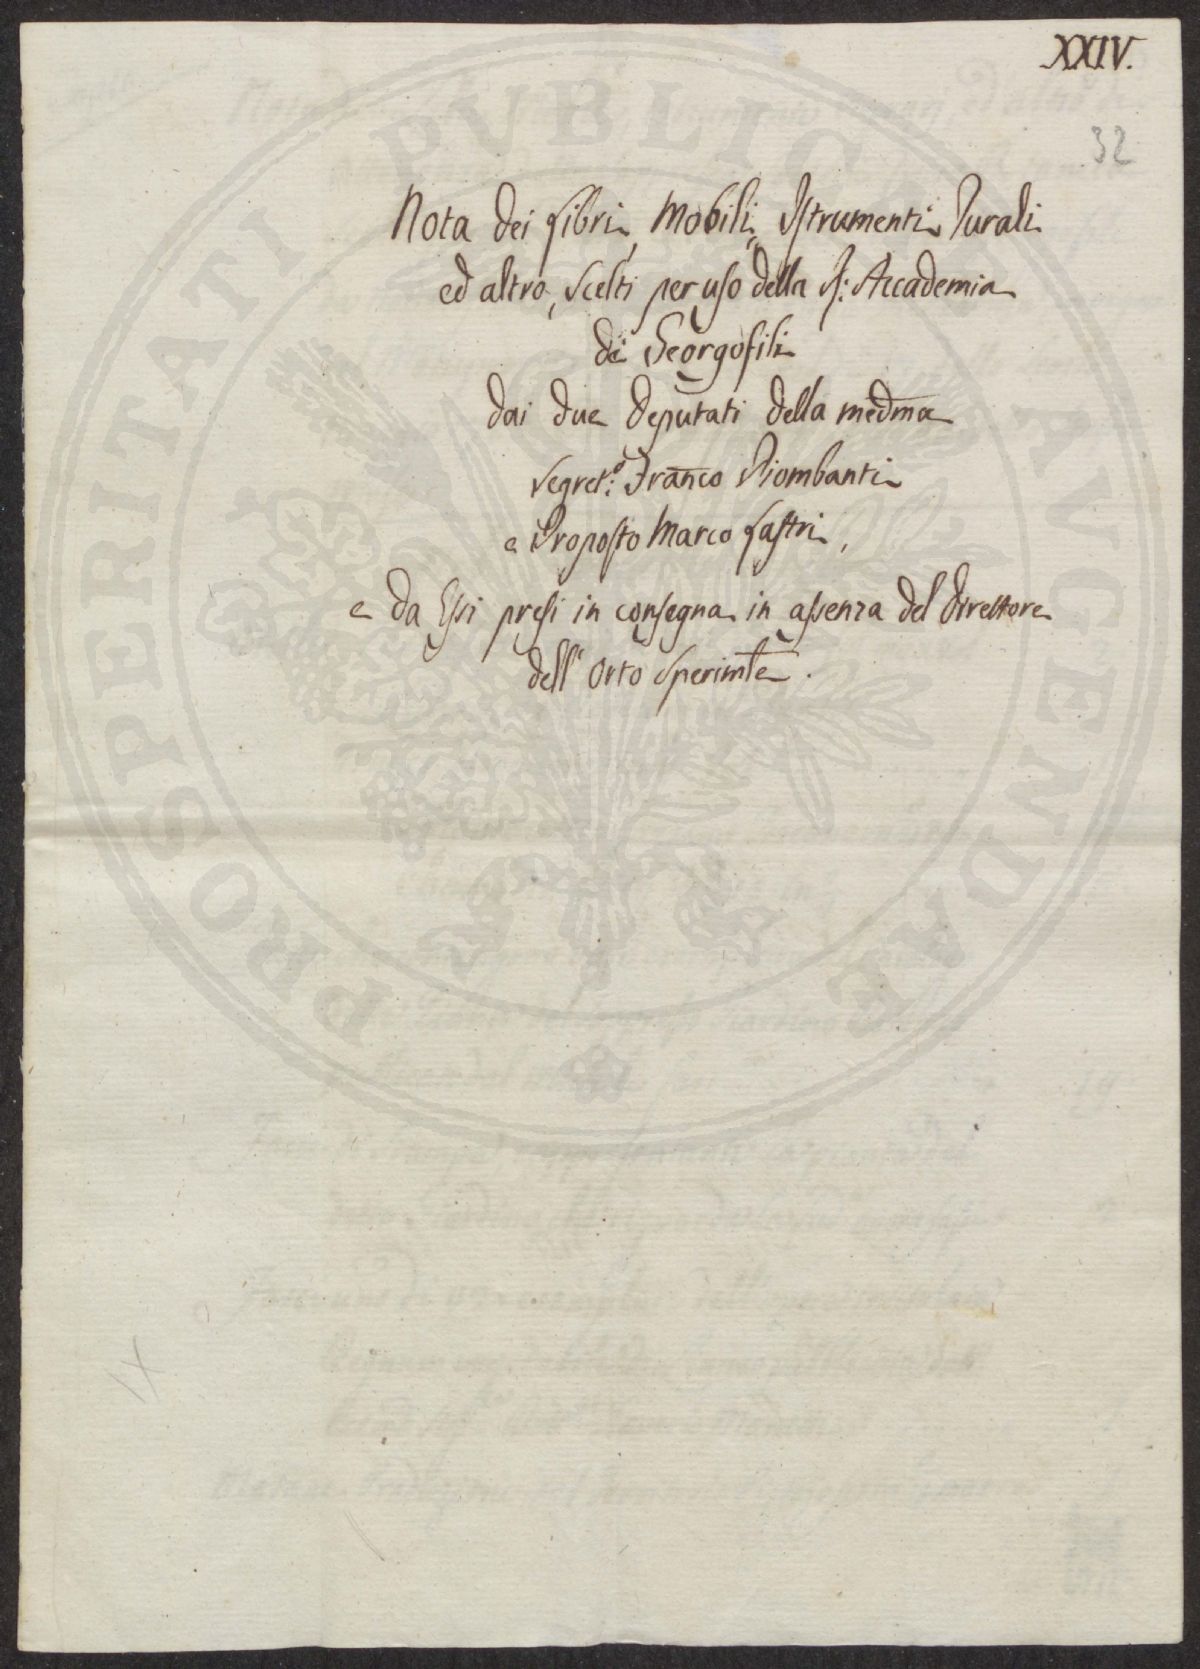 XXIV.
32
Nota dei Libri, Mobili, Istrumenti Rurali
ed altro, scelti per uso della R: Accademia
de' Georgofili
dai due Deputati della medma
Segret:o Franco Piombanti
e Proposto Marco Lastri,
e da Essi presi in consegna in assenza del Direttore
dell' Orto Sperimle.
PROSPERITATI PVBLICAE AVGENDAE